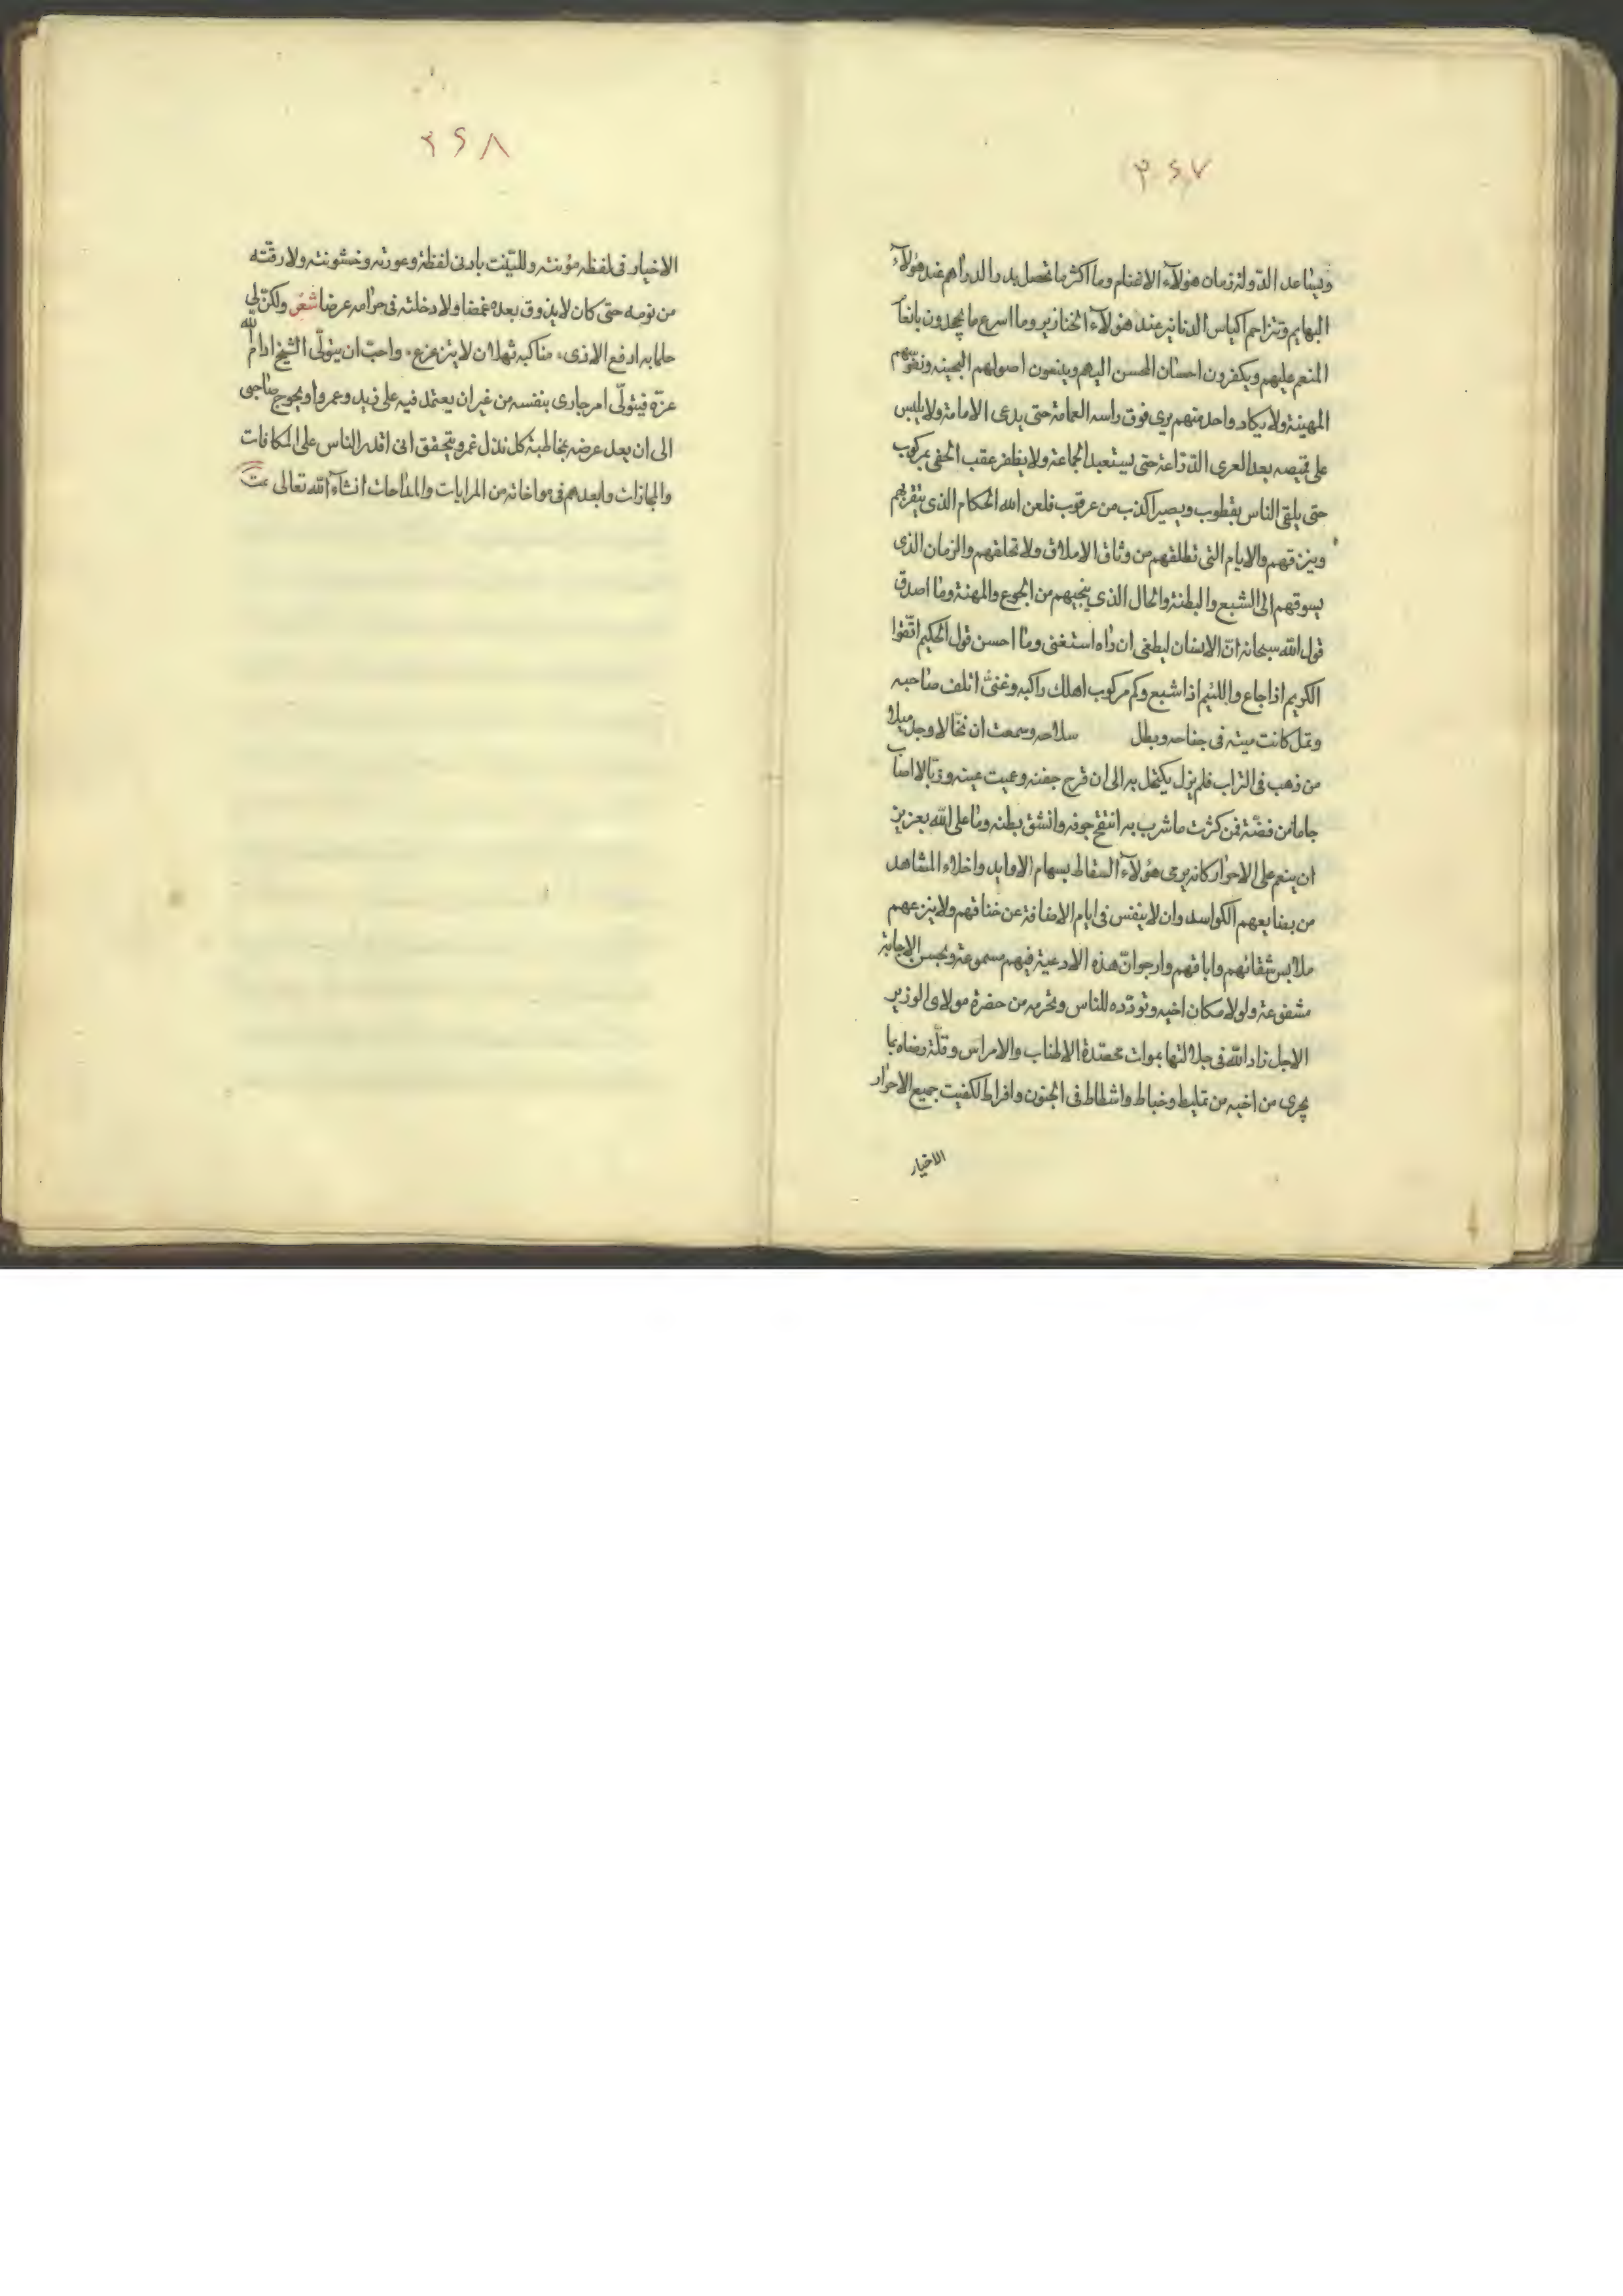 ٣٤٧
ويساعد الدولة زمان هؤلآء الاغنام وما اكثر ما تحصل بدر الدراهم عند هؤلآء
البهايم وتتزاحم اكياس الدنانير عند هؤلآء الخنازير وما اسرع ما يجحدون بانعا
المنعم عليهم ويكفرون احسان المحسن اليهم ويتبعون اصولهم الهجينه ونفوسهم
المهينة ولا يكاد واحد منهم يرى فوق راسه العمامة حتى يدعى الامامة ولا يلبس
على قميصه بعد العرى الدراعة حتى يستعبد الجماعة ولا يظفر عقب الحفى بمركوب
حتى يلقى الناس بقطوب ويصير اكذب من عرقوب فلعن الله الحكام الذى يقربهم
ويرزقهم والايام التى تطلقهم من وثاق الاملاق ولا تحلقهم والزمان الذى
يسوقهم الى الشبع والبطنة والحال الذى ينجيهم من الجوع والمهنة وما اصدق
قول الله سبحانه انّ الانسان ليطغى ان راه استغنى وما احسن قول الحكيم اتّقوا
الكريم اذا جاع واللئيم اذا شبع وكم مركوب اهلك راكبه وغنىً اتلف صاحبه
ونمل كانت ميته فى جناحه وبطل سلاحه وسمعت ان نخّالا وجد ميلا
من ذهب فى التراب فلم يزل يكتحل به الى ان قرح جفنه وعميت عينه وزبّالا اصاب
جاما من فضّة فمن كثرت ما شرب به انتفخ جوفه وانشق بطنه وما على الله بعزيز
ان ينعم على الاحرار كانه يرمى هؤلآء السقاط بسهام الاوابد واخلاء المشاهد
من بضايعهم الكواسد وان لا ينفس فى ايام الاضافة عن خناقهم ولا ينزعهم
ملابس شقائهم واباقهم وارجو انّ هذه الادعية فيهم مسموعة وبحسن الاجابة
مشفوعة ولولا مكان اخيه وتودّده للناس وتحرمه من حضرة مولاى الوزير
الاجل زاد الله فى جلالتها بموات محصدة الاطناب والامراس وقلّة رضاه بما
يجرى من اخيه من تخليط وخباط واشطاط فى الجنون وافراط لكفيت جميع الاحرار
الاخيار
٣٤٨
الاخيار فى لفظه مؤنته وللبّنت بادنى لفظة وعورته وخشونته ولا رقته
من نومه حتى كان لا يذوق بعده غمضا ولا دخلته فى حرامه عرضا شعر ولكن لى
حلما به ادفع الاذى، مناكبه ثهلان لا يتزعزع، واحبّ ان يتولّى الشيخ ادام الله
عزّه فيتولّى امر جارى بنفسه من غير ان يعتمد فيه على زيد وعمرو او يحوج صاحبى
الى ان يعد عرضه بمخاطبة كل نذل غمر ويتحقق انى اقدر الناس على المكافات
والمجازات وابعدهم فى مواخاته من المرايات والمداحات انشآء الله تعالى تمت